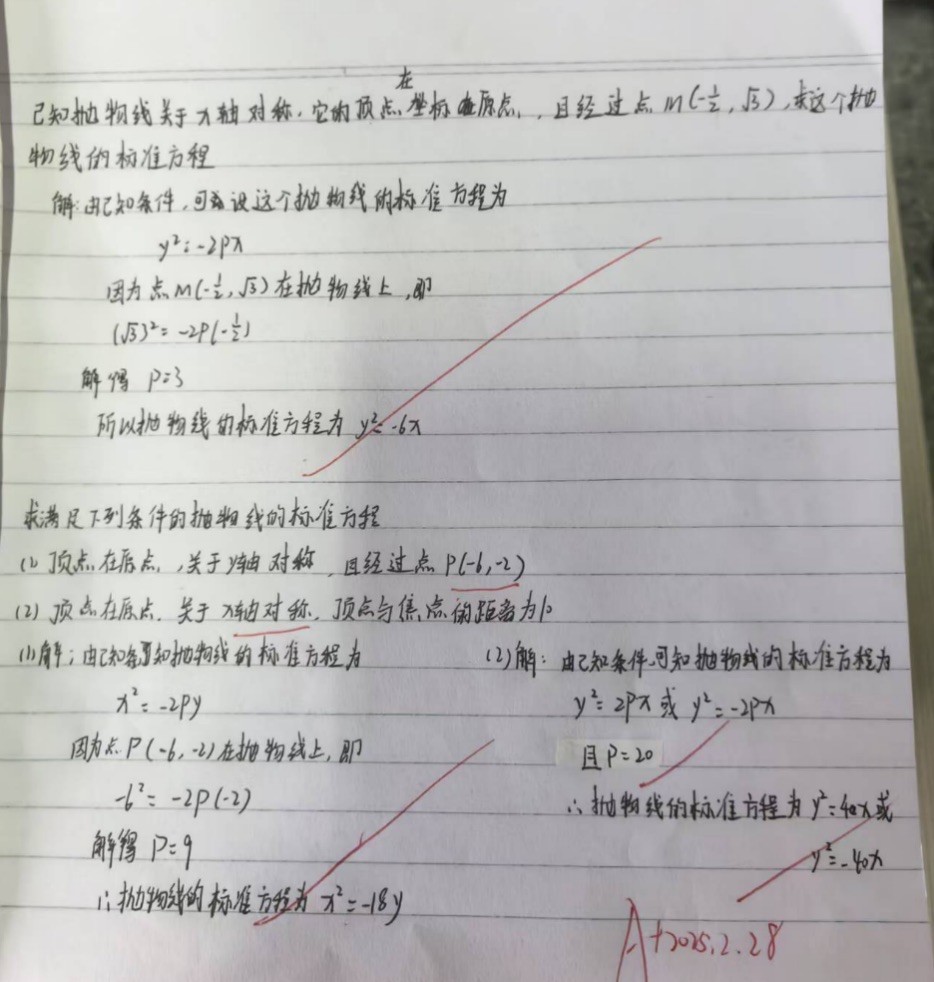 已知抛物线关于x轴对称,它的顶点坐标在原点,且经过点M(-½,√3),求这个抛
物线的标准方程
解:由已知条件,可设这个抛物线的标准方程为
y²=-2px
因为点M(-½,√3)在抛物线上,即
(√3)²=-2p(-½)
解得 p=3
所以抛物线的标准方程为y²=-6x
求满足下列条件的抛物线的标准方程
(1)顶点在原点,关于y轴对称,且经过点P(-6,-2)
(2)顶点在原点.关于x轴对称,顶点与焦点的距离为10
(1)解;由已知条可知抛物线的标准方程为
x²=-2py
因为点P(-6,-2)在抛物线上,即
-6²=-2p(-2)
解得 P=9
∴抛物线的标准方程为x²=-18y
(2)解:由已知条件可知抛物线的标准方程为
y²=2px或y²=-2px
且P=20
∴抛物线的标准方程为y²=40x或
y²=-40x
A+2025.2.28